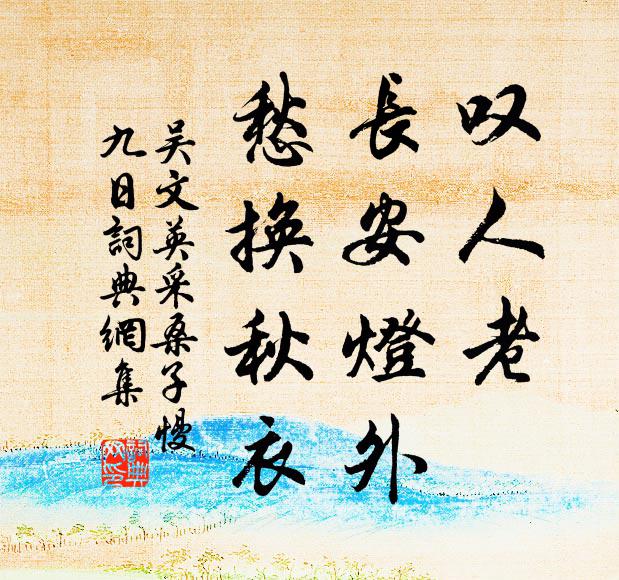 叹人老
長安燈外
愁換秋衣
吴文英采桑子慢
九日詞典網集